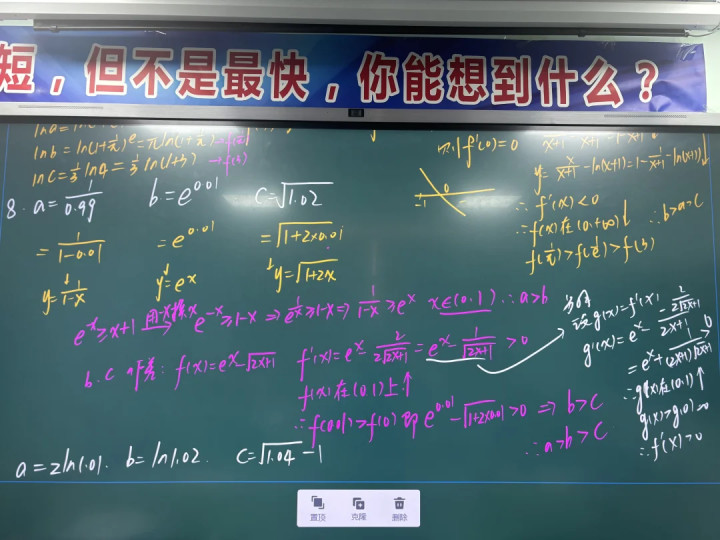 短，但不是最快，你能想到什么？
ln b = ln(1+1/π)^e = π ln(1+1/π) → f(1/π)
ln c = 1/3 ln4 = 1/3 ln(1+3) → f(3)
8. a = 1/0.99  b = e^0.01  c = √1.02
= 1/(1-0.01)  = e^0.01  = √(1+2×0.01)
y = 1/(1-x)  y = e^x  y = √(1+2x)
e^x ≥ x+1 用-x换x → e^-x ≥ 1-x ⇒ 1/e^x ≥ 1-x ⇒ 1/(1-x) ≥ e^x  x∈(0,1) ∴ a>b
b.c 作差: f(x) = e^x - √(2x+1)  f'(x) = e^x - 2/(2√(2x+1)) = e^x - 1/√(2x+1) > 0
f(x)在(0,1)上↑
∴ f(0.01) > f(0) 即 e^0.01 - √(1+2×0.01) > 0 ⇒ b>c
∴ a>b>c
a = 2ln1.01.  b = ln1.02.  c = √1.04 - 1
f'(0) = 0
-1  0
y = x/(x+1) - ln(x+1) = 1 - 1/(x+1) - ln(x+1)↓
∴ f'(x) < 0
∴ f(x)在(0,+∞)↓  ∴ b>a>c
设 g(x) = f'(x)
∴ g(x)在(0,1)↑
g(x) > g(0) = 0
∴ f'(x) > 0
置顶  克隆  删除